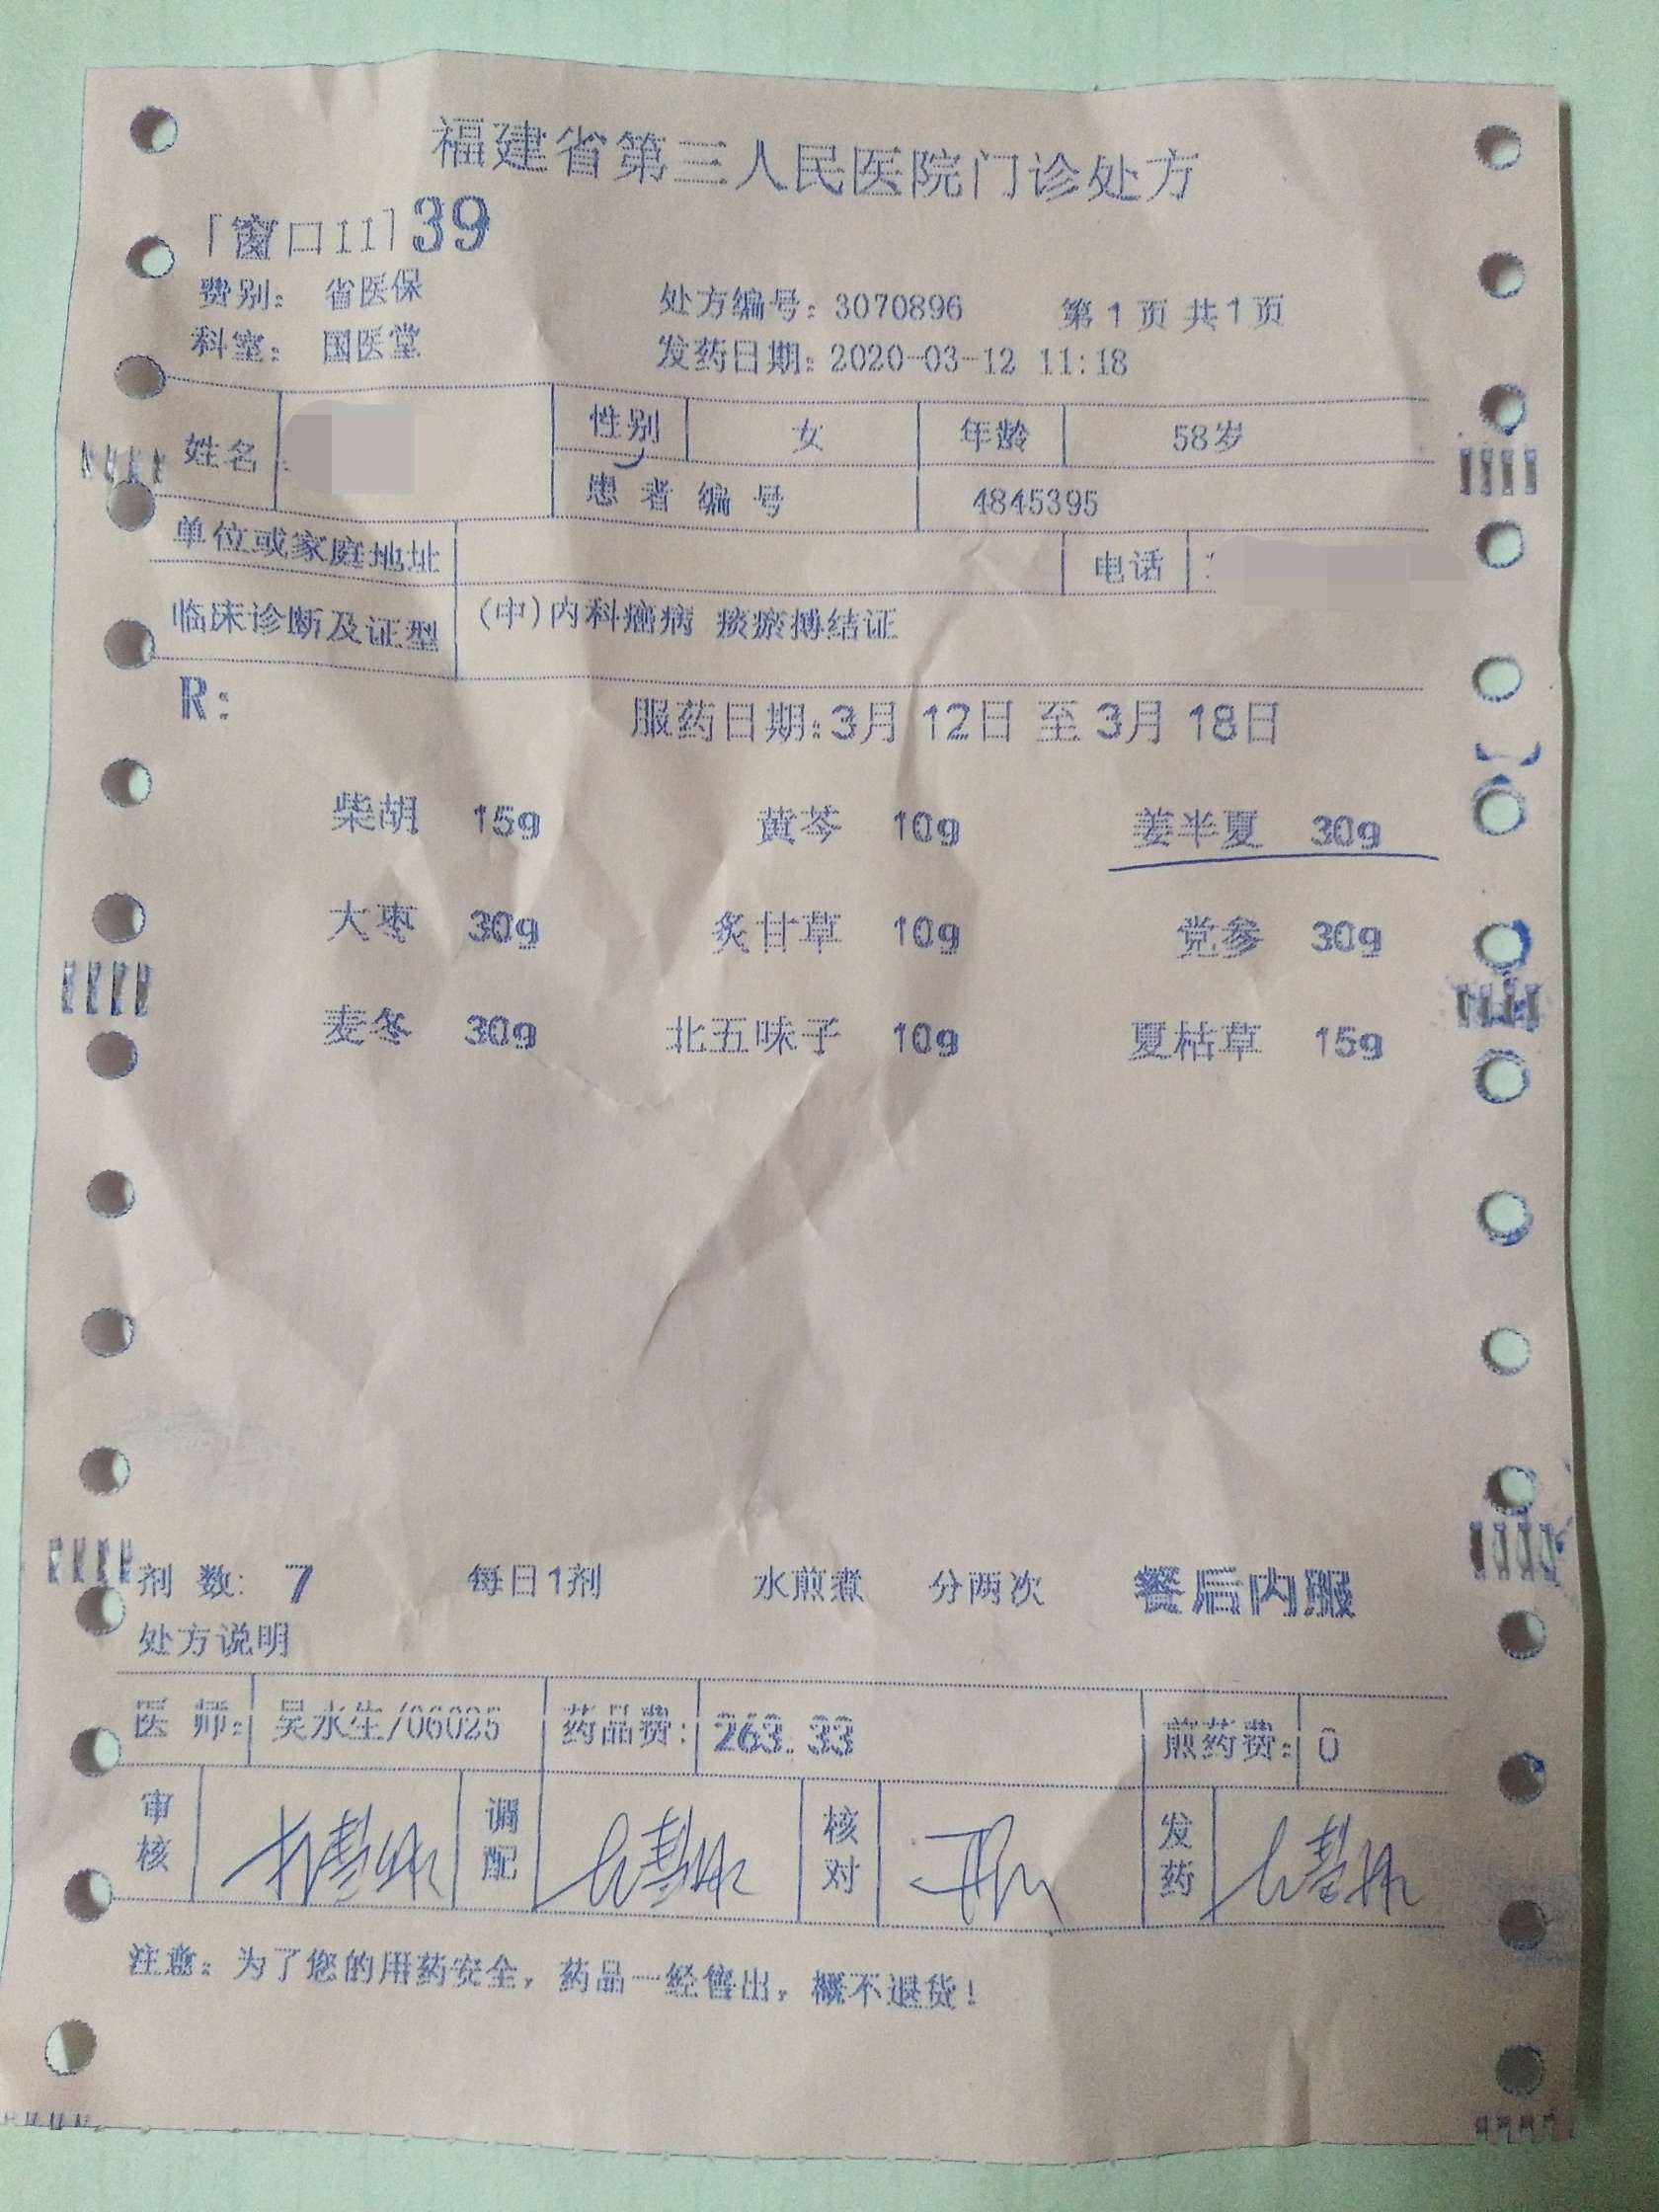 福建省第三人民医院门诊处方
「窗口11」39
费别： 省医保 处方编号：3070896 第1页 共1页
科室： 国医堂 发药日期：2020-03-12 11:18
姓名 性别 女 年龄 58岁
患者编号 4845395
单位或家庭地址 电话
临床诊断及证型 (中)内科癌病 痰瘀搏结证
R:
服药日期:3月 12日 至 3月 18日
柴胡 15g 黄芩 10g 姜半夏 30g
大枣 30g 炙甘草 10g 党参 30g
麦冬 30g 北五味子 10g 夏枯草 15g
剂 数: 7 每日1剂 水煎煮 分两次 餐后内服
处方说明
医 师: 吴水生/06025 药品费: 263.33 煎药费: 0
审核 调配 核对 发药
注意：为了您的用药安全，药品一经售出，概不退货！